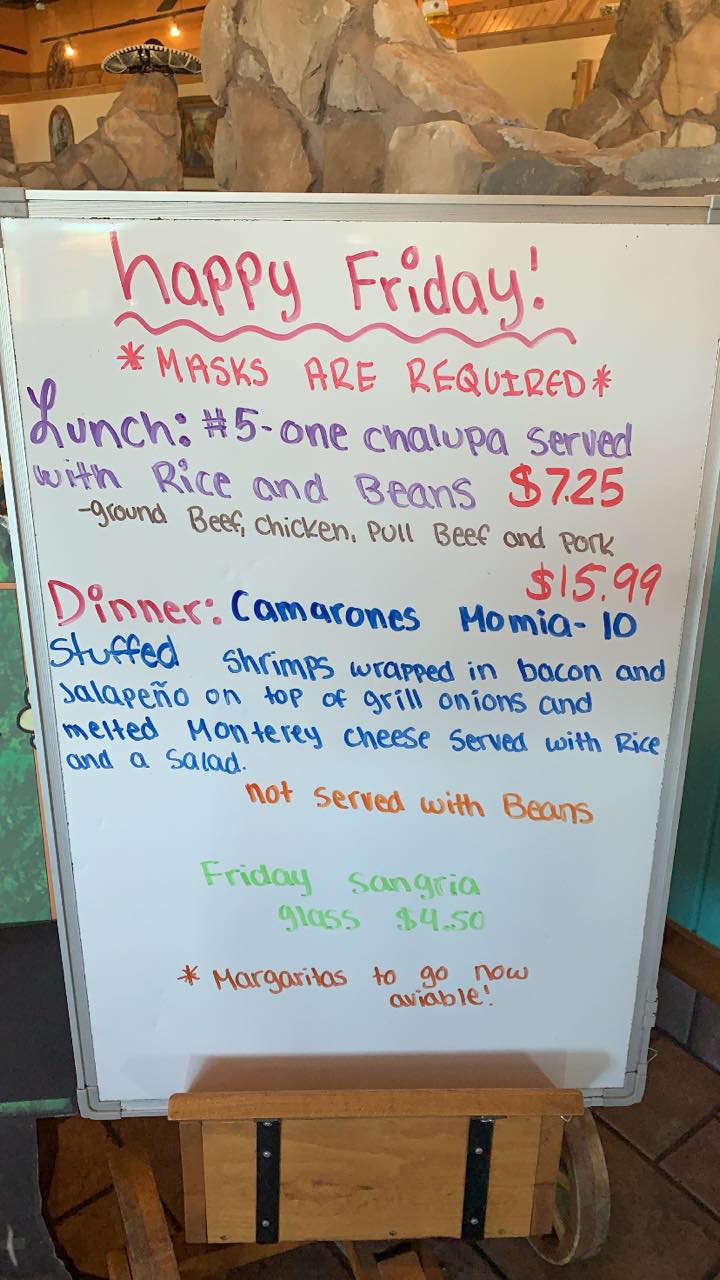 happy Friday!
*MASKS ARE REQUIRED*
Lunch: #5-one chalupa served
with Rice and Beans $7.25
-ground Beef, chicken, Pull Beef and Pork
$15.99
Dinner: Camarones Momia-10
Stuffed Shrimps wrapped in bacon and
Jalapeño on top of grill onions and
melted Monterey cheese Served with Rice
and a Salad.
not served with Beans
Friday sangria
glass $4.50
* Margaritas to go now
aviable!